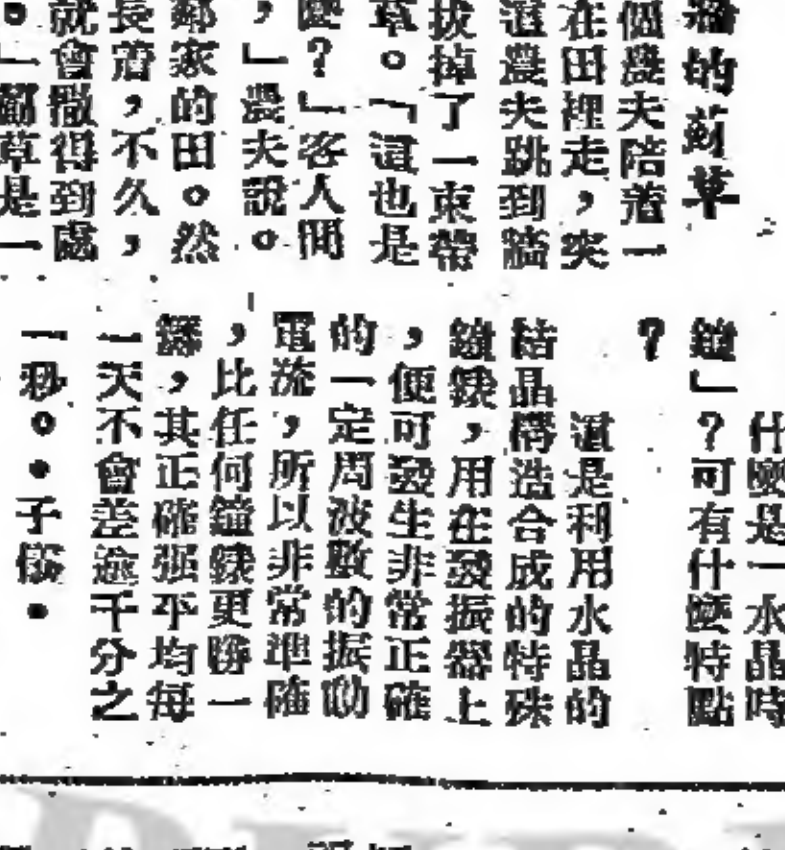 的薊草
個農夫陪着一
在田裡走，突
這農夫跳到牆
拔掉了一束帶
草。「這也是
麼？」客人問
，」農夫說。
鄰家的田。然
長着，不久，
就會撒得到處
。」薊草是一
什麼是一水晶時
鐘」？可有什麼特點
？
這是利用水晶的
結晶構造合成的特殊
鐘錶，用在發振器上
，便可發生非常正確
的一定周波數的振動
電流，所以非常準確
，比任何鐘錶更勝一
籌，其正確强平均每
一天不會差逾千分之
一秒。•子